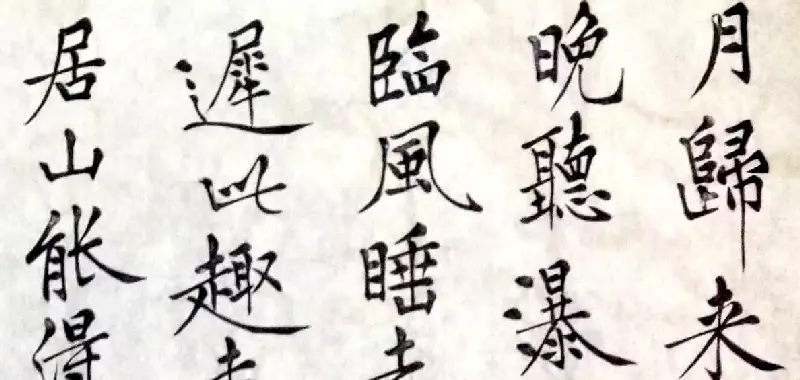 月歸来
晚聽瀑
臨風睡
遲此趣
居山能得